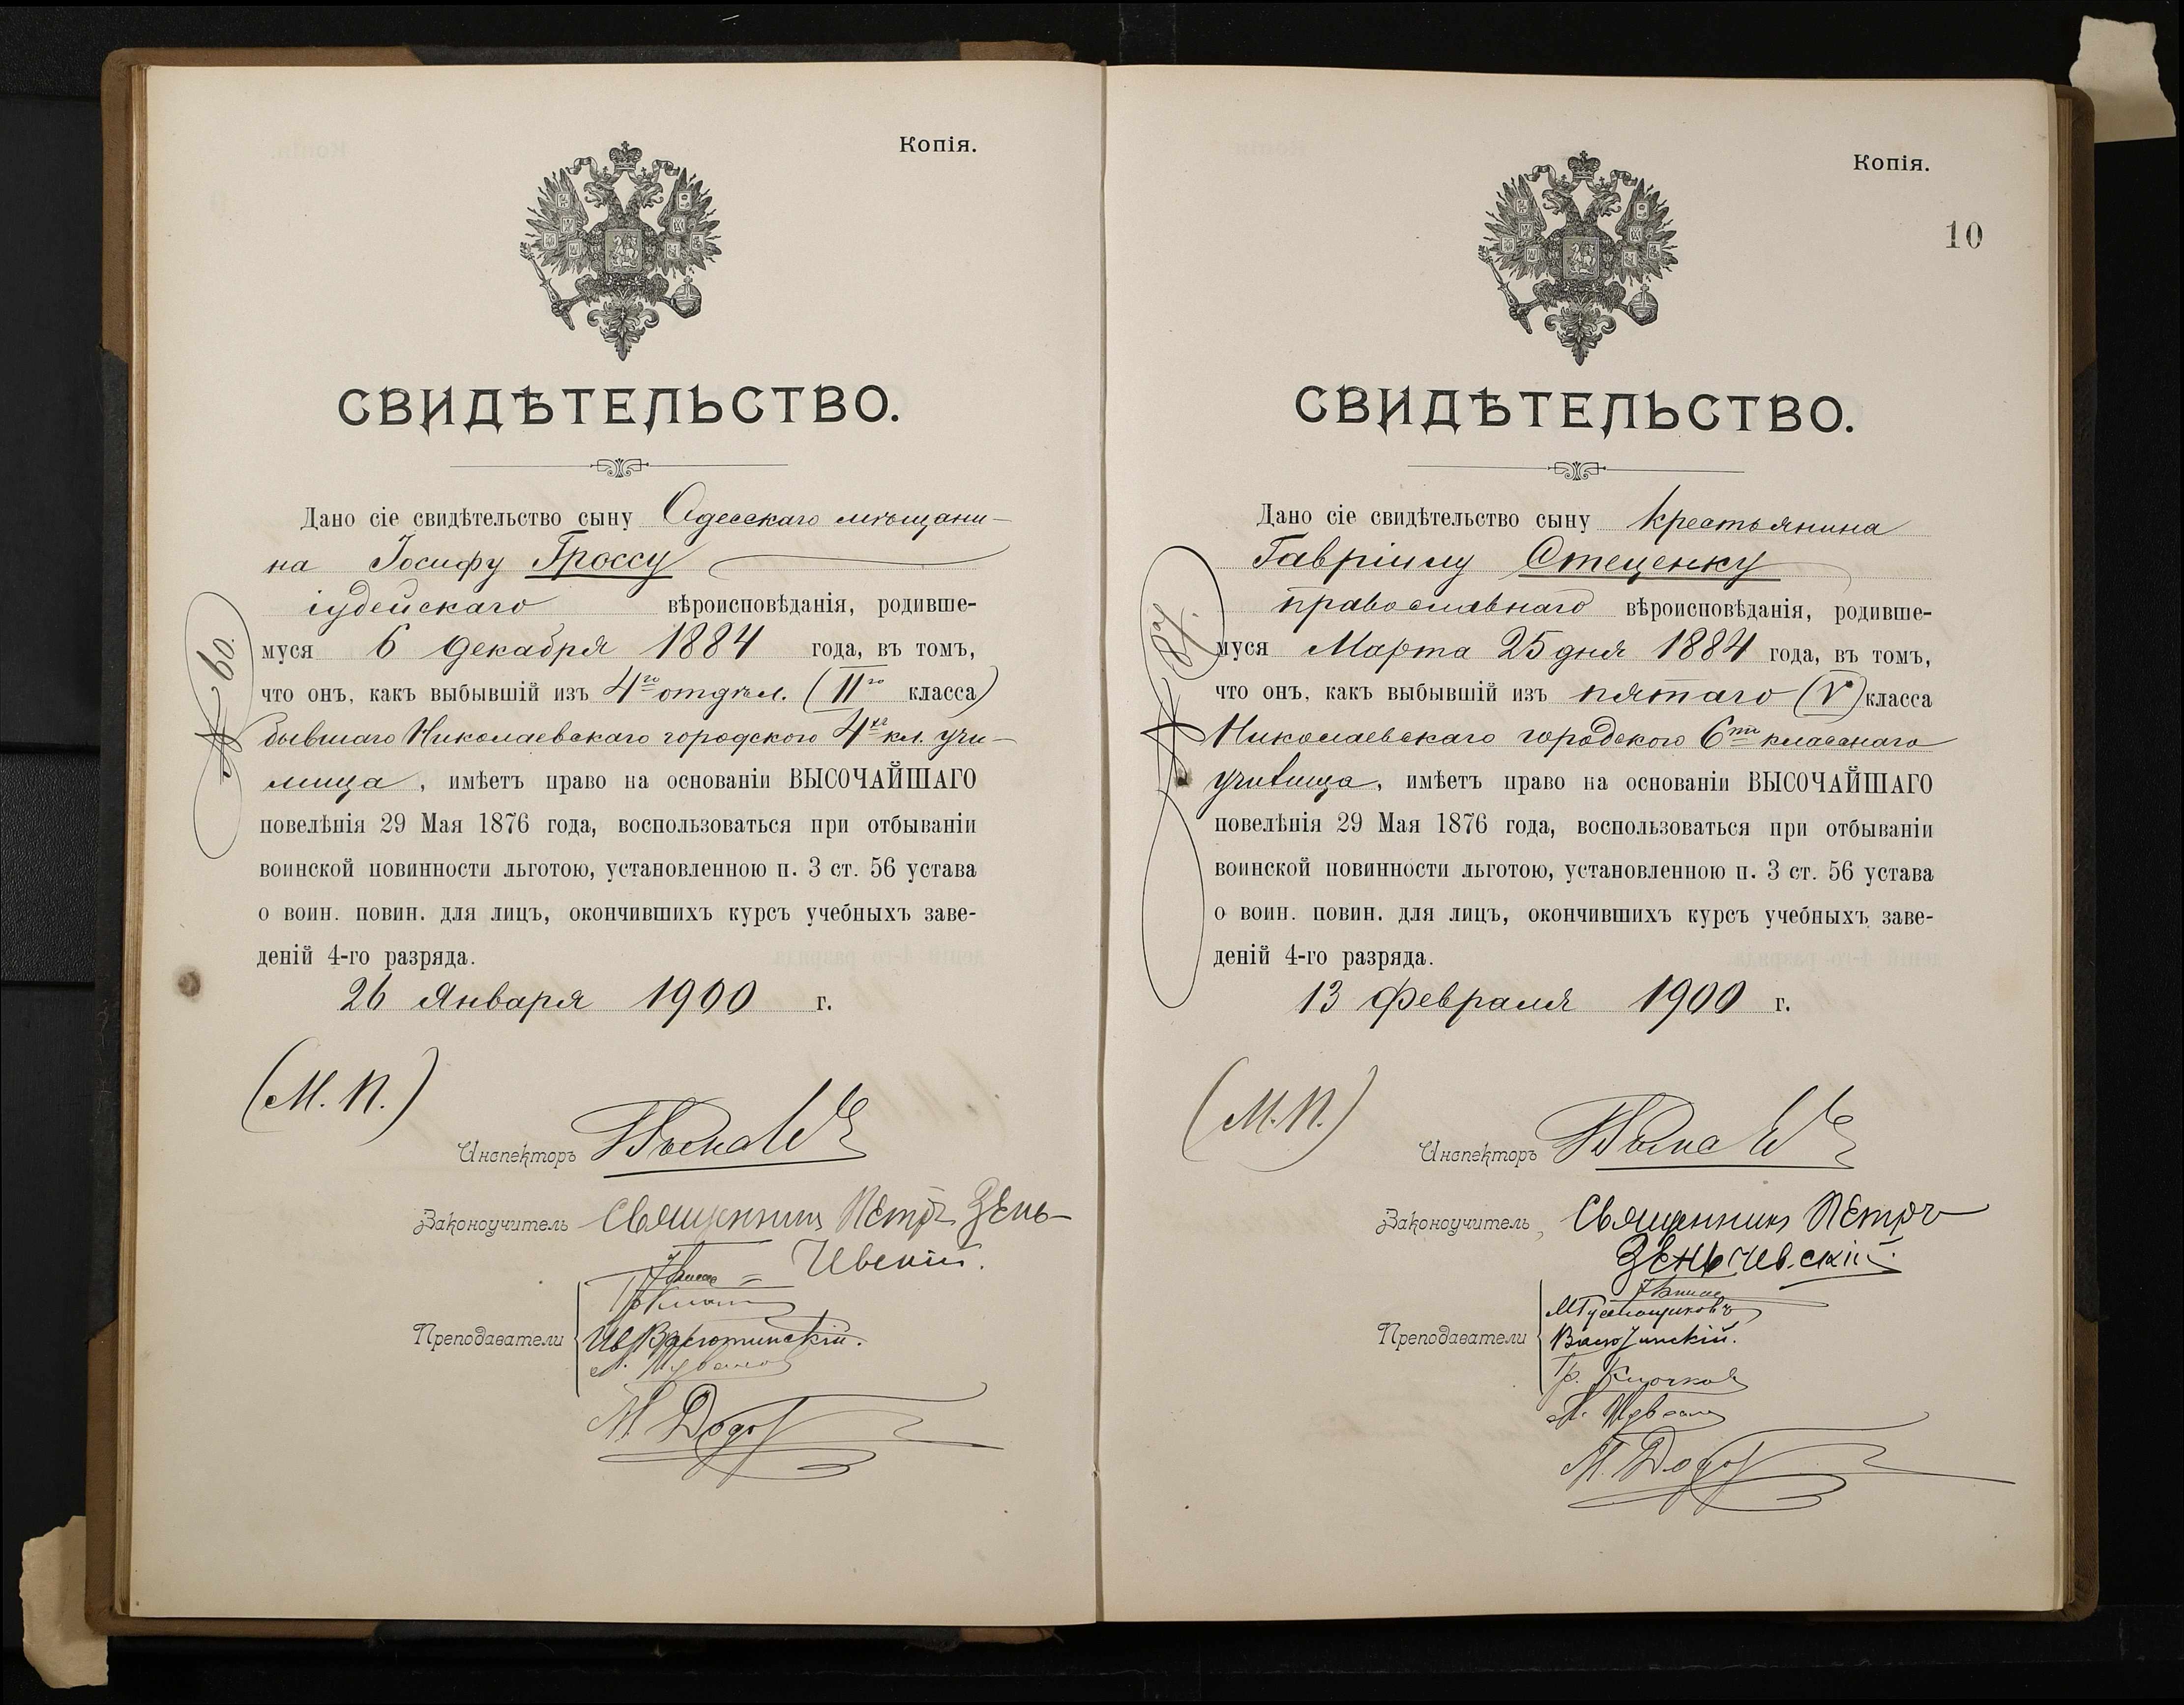 Копія.
СВИДѢТЕЛЬСТВО.
Дано сіе свидѣтельство сыну Одесскаго мѣщани-
на Іосифу Гроссу
іудейскаго вѣроисповѣданія, родивше-
муся 6 декабря 1884 года, въ томъ,
что онъ, какъ выбывшій изъ 4го отдѣл. (IIго класса)
бывшаго Николаевскаго городского 4хъ кл. учи-
лища, имѣетъ право на основаніи ВЫСОЧАЙШАГО
повелѣнія 29 Мая 1876 года, воспользоваться при отбываніи
воинской повинности льготою, установленною п. 3 ст. 56 устава
о воин. повин. для лицъ, окончившихъ курсъ учебныхъ заве-
деній 4-го разряда.
26 Января 1900 г.
(М. П.)
Инспекторъ
Законоучитель Священникъ Петръ Зень-
чевскій.
Преподаватели
№ 60.
Копія.
10
СВИДѢТЕЛЬСТВО.
Дано сіе свидѣтельство сыну крестьянина
Гавріилу Стеценку
православнаго вѣроисповѣданія, родивше-
муся Марта 25 дня 1884 года, въ томъ,
что онъ, какъ выбывшій изъ пятаго (V) класса
Николаевскаго городского 6ти класснаго
училища, имѣетъ право на основаніи ВЫСОЧАЙШАГО
повелѣнія 29 Мая 1876 года, воспользоваться при отбываніи
воинской повинности льготою, установленною п. 3 ст. 56 устава
о воин. повин. для лицъ, окончившихъ курсъ учебныхъ заве-
деній 4-го разряда.
13 Февраля 1900 г.
(М. П.)
Инспекторъ
Законоучитель, Священникъ Петръ
Зеньчевскій.
Преподаватели
Гр. Клочковъ